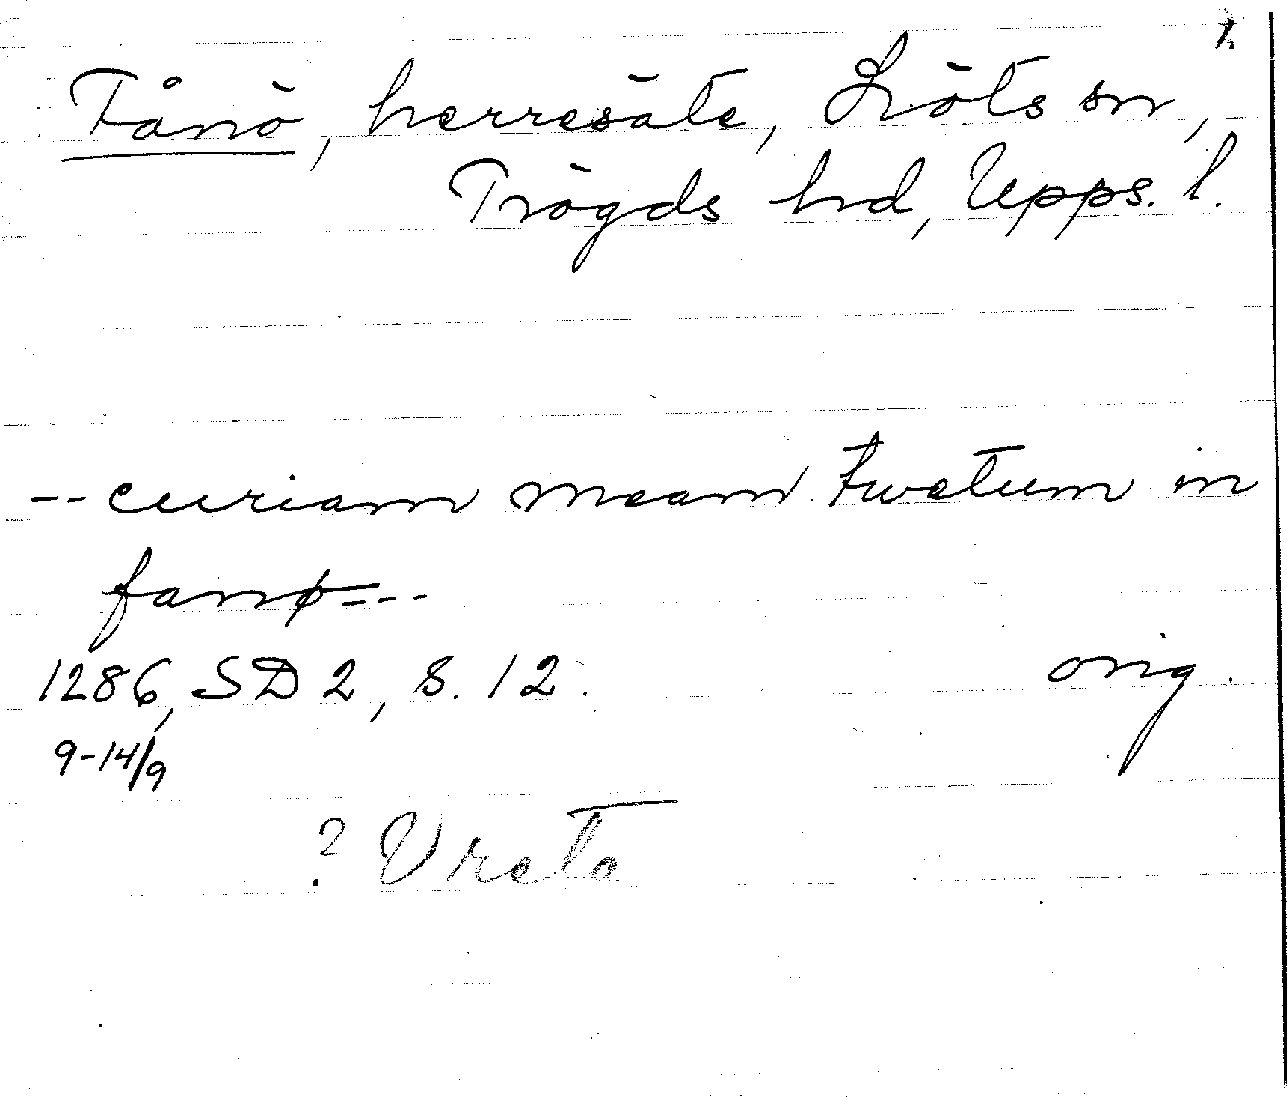 1.
Fånö, herresäte, Löts sn,
Trögds hd, Upps. l.
-- curiam meam twetum in
fanø---
1286, SD 2, s. 12. orig.
9-14/9
? Vreta